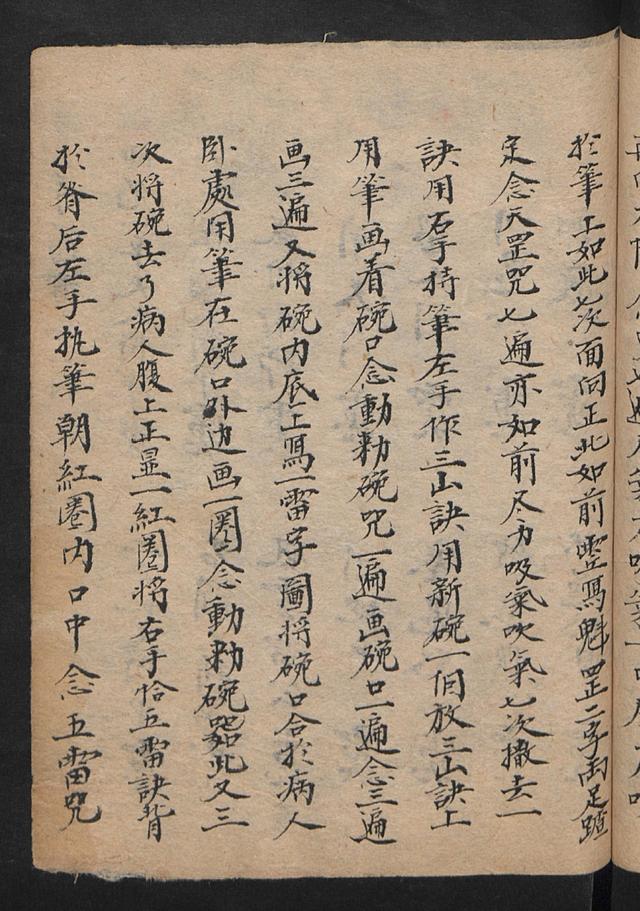 於筆上如此七次面向正北如前虛寫魁罡二字兩足踏
定念天罡咒七遍亦如前尽力吸氣吹氣七次撤去一
訣用右手持筆左手作三山訣用新碗一個放三山訣上
用筆画着碗口念動勅碗咒一遍画碗口一遍念三遍
画三遍又將碗内底上寫一雷字圖將碗口合於病人
卧處用筆在碗口外边画一圈念動勅碗咒如此又三
次將碗去了病人腹上正显一紅圈將右手恰五雷訣背
於脊后左手执筆朝紅圈内口中念五雷咒